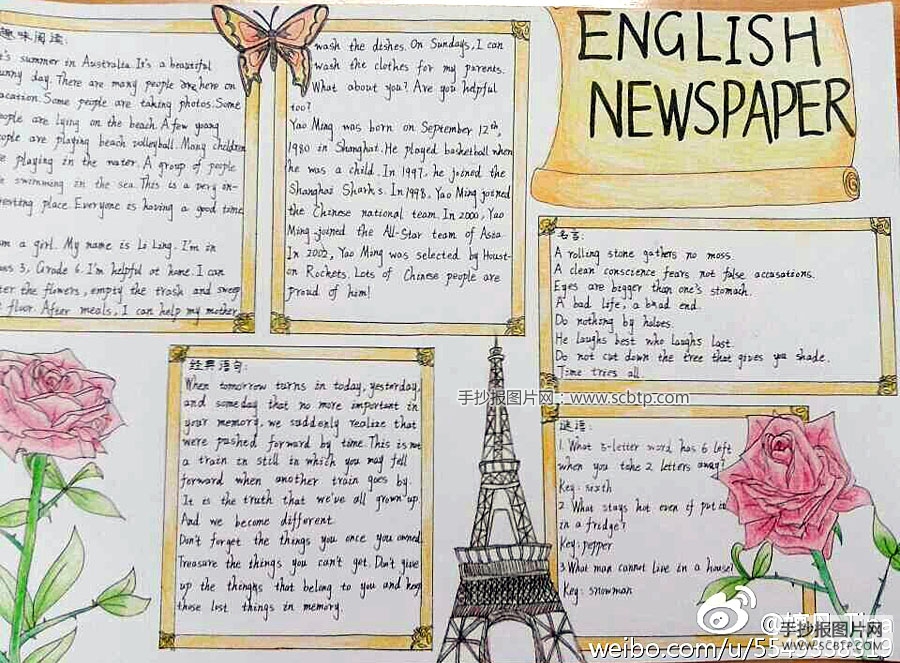 趣味阅读:
It's summer in Australia It's a beautiful
sunny day. There are many people are here on
vacation. Some people are taking photos. Some
people are lying on the beach. A few young
people are playing beach volleyball. Many children
are playing in the water. A group of people
swimming in the sea. This is a very in-
teresting place. Everyone is having a good time
am a girl. My name is Li Ling. I'm in
Class 3, Grade 6. I'm helpful at home. I can
water the flowers, empty the trash and sweep
floor. After meals, I can help my mother
wash the dishes. On Sundays, I can
wash the clothes for my parents.
What about you? Are you helpful
too?
Yao Ming was born on September 12th,
1980 in Shanghai. He played basketball when
he was a child. In 1997. he joined the
Shanghai Sharks. In 1998, Yao Ming joined
the Chinese national team. In 2000, Yao
Ming joined the All-Star team of Asia.
In 2002, Yao Ming was selected by Houst-
on Rockets. Lots of Chinese people are
proud of him!
ENGLISH
NEWSPAPER
名言:
A rolling stone gathers no moss.
A clean conscience fears not false accusations.
Eyes are bigger than one's stomach.
A bad life, a bad end.
Do nothing by halves.
He laughs best who laughs last.
Do not cut down the tree that gives you shade.
Time tries all.
经典语句:
When tomorrow turns in today, yesterday,
and someday that no more important in
your memory, we suddenly realize that
were pushed forward by time. This is not
a train in still in which you may fell
forward when another train goes by.
It is the truth that we've all grown up.
And we become different.
Don't forget the things you once you owned.
Treasure the things you can't get. Don't give
up the thingks that belong to you and keep
those lost things in memory.
手抄报图片网:www.scbtp.com
谜语:
1. What 5-letter word has 6 left
when you take 2 letters away?
Key: sixth
2. What stays hot even if put it
in a fridge?
Key: pepper
3. What man cannot live in a house?
Key: snowman
手抄报图片网
www.scbtp.com
weibo.com/u/